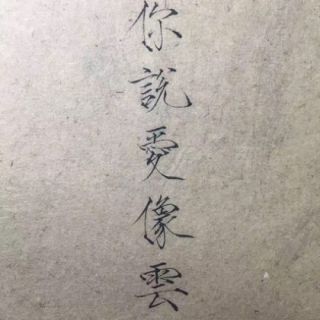 你說愛像雲